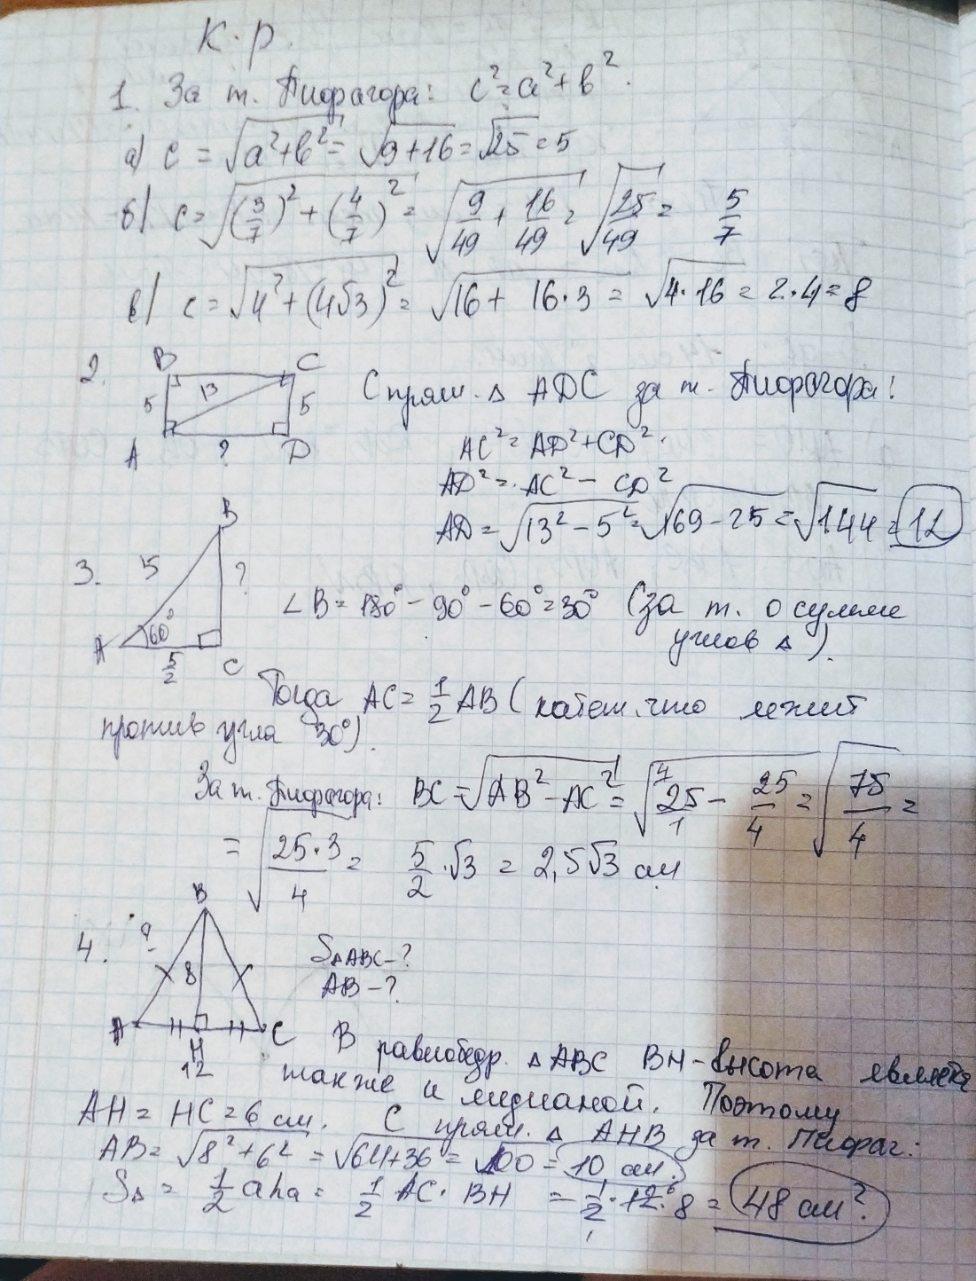 К.р.
1. За т. Пифагора: c² = a² + b².
а) c = √(a²+b²) = √(9+16) = √25 = 5
б) c = √((3/7)² + (4/7)²) = √(9/49 + 16/49) = √(25/49) = 5/7
в) c = √(4² + (4√3)²) = √(16 + 16·3) = √(4·16) = 2·4 = 8
2. B C 13 5 5 A ? D
С прям. △ ADC за т. Пифагора:
AC² = AD² + CD².
AD² = AC² − CD²
AD = √(13² − 5²) = √(169 − 25) = √144 = 12
3. B 5 ? A 60° 5/2 C
∠B = 180° − 90° − 60° = 30° (за т. о сумме
углов △).
Тогда AC = 1/2 AB (катет, что лежит
против угла 30°).
За т. Пифагора: BC = √(AB² − AC²) = √(25/1 − 25/4) = √(75/4) =
= √(25·3/4) = 5/2 · √3 = 2,5√3 см
4. B ? 8 A H C 12
S△ABC − ?
AB − ?
В равнобедр. △ ABC BH − высота является
также и медианой. Поэтому
AH = HC = 6 см. С прям. △ AHB за т. Пифаг:
AB = √(8² + 6²) = √(64+36) = √100 = 10 см.
S△ = 1/2 aha = 1/2 AC · BH = 1/2 · 12 · 8 = 48 см².